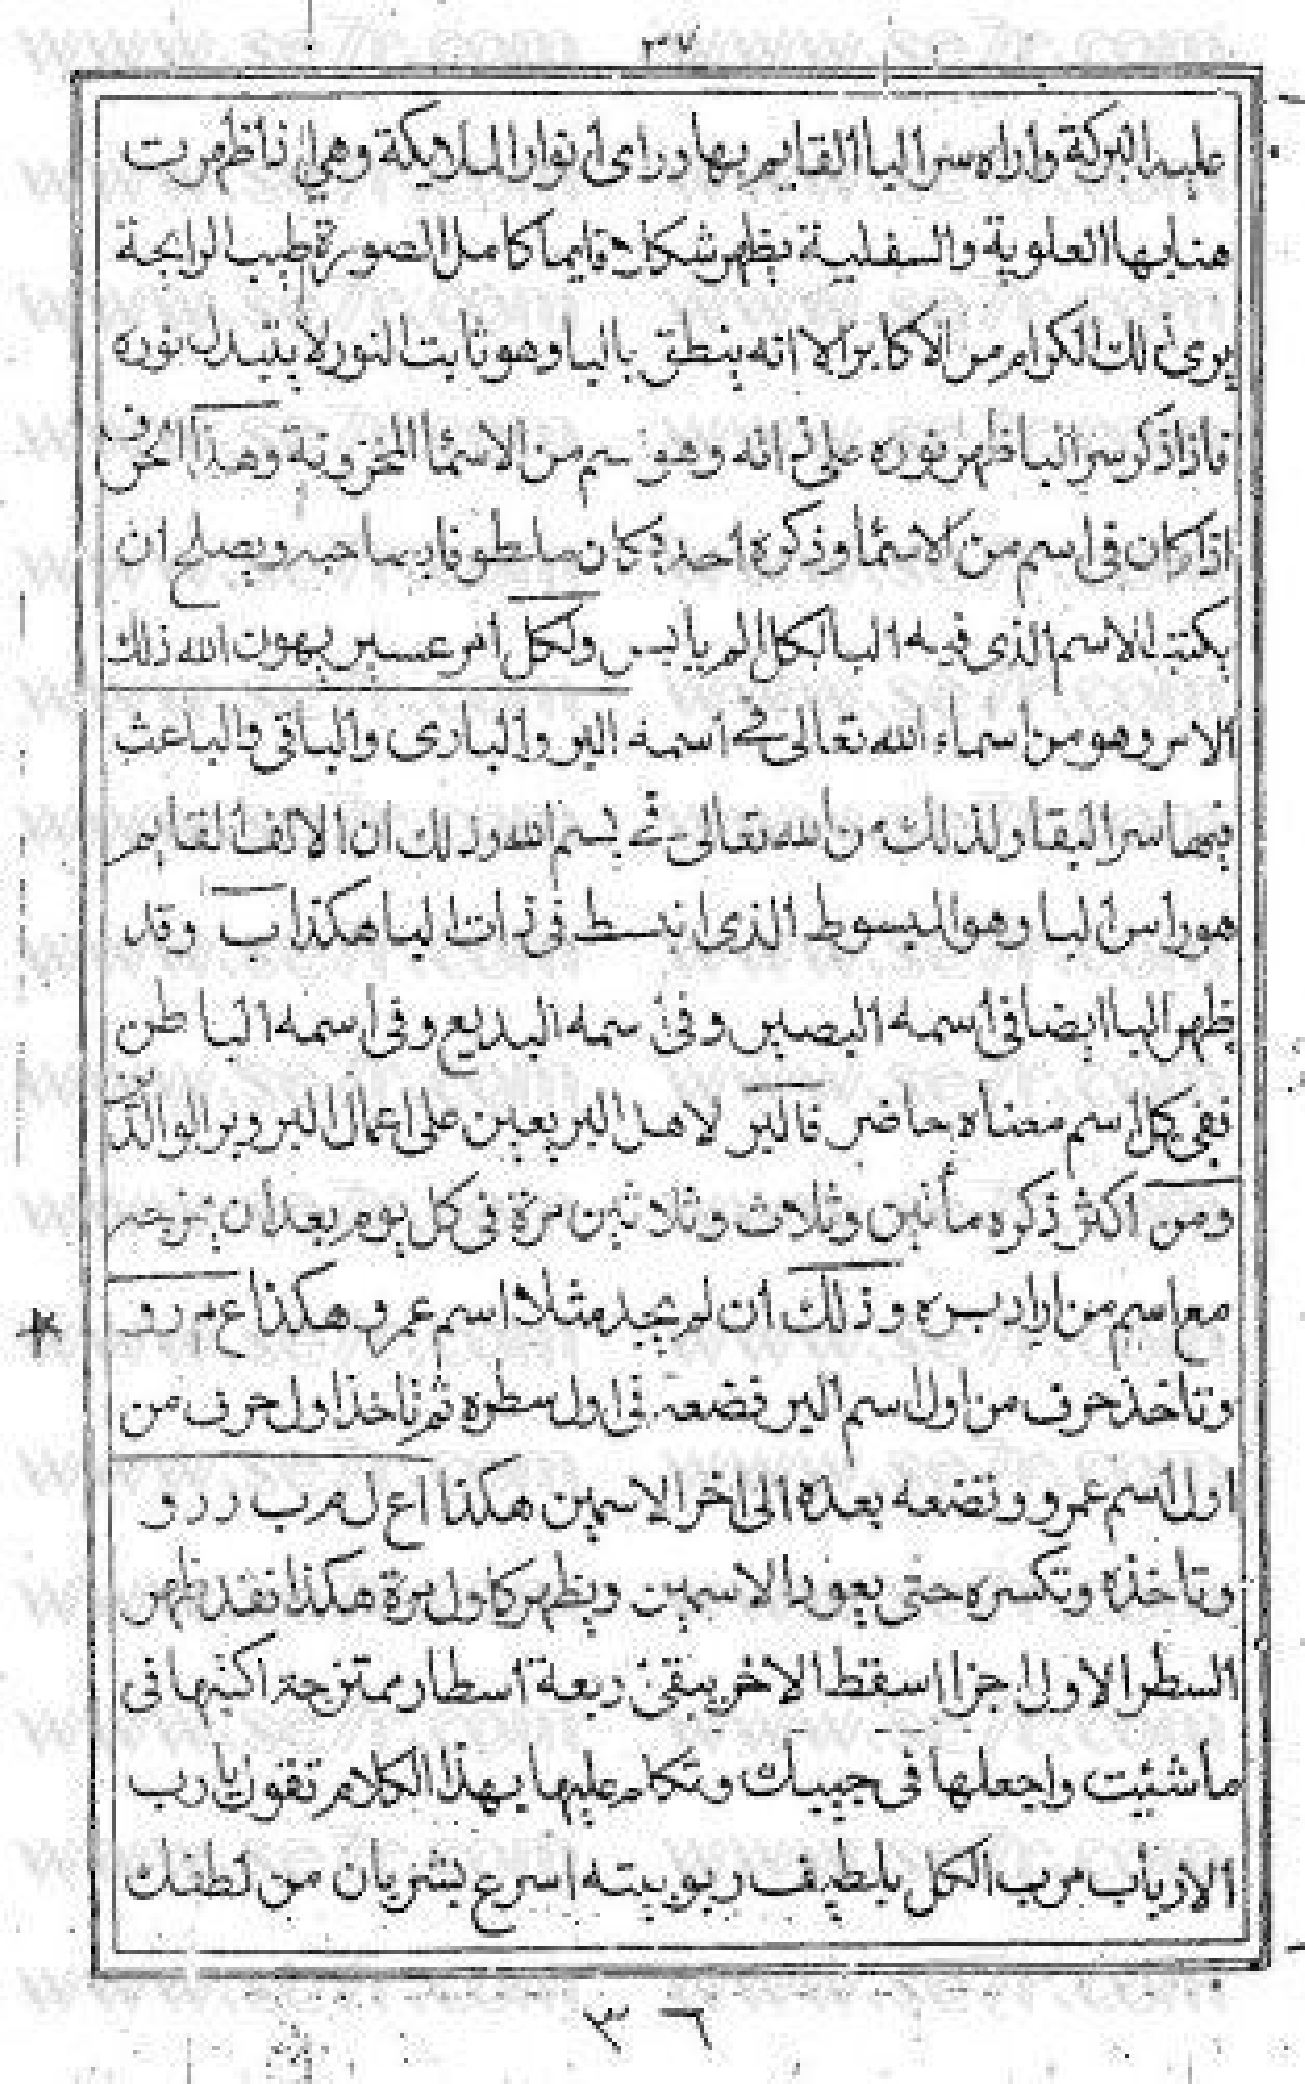 ٣٧
عليه البركة واراه سر البا القايم بها وراى انوار الملايكة وهي اذا ظهرت
هنا بها العلوية والسفلية يظهر شكلا قايما كامل الصورة طيب الرايحة
يرى ذلك الكرام من الاكابر الا انه ينطق بالبا وهو ثابت النور لا يتبدل نوره
فاذا ذكر سر البا ظهر نوره على ذاته وهو اسم من الاسما المخزونة وهذا الحرف
اذا كان فى اسم من الاسما وذكره احد كان ملطوفا به صاحبه ويصلح ان
يكتب الاسم الذى فيه البا لكل الم يابس ولكل امر عسير يهون الله ذلك
الامر وهو من اسماء الله تعالى فى اسمه البر والبارى والباقى والباعث
فيها سر البقا ولذلك من الله تعالى فى بسم الله وذلك ان الالف القايم
هو راس البا وهو المبسوط الذى انبسط فى ذات البا هكذا ب وقد
ظهر البا ايضا فى اسمه البصير وفى اسمه البديع وفى اسمه الباطن
ففى كل اسم معناه حاضر فالبر لاهل البر يعين على اعمال البر وبر الوالدين
ومن اكثر ذكره مأتين وثلاث وثلاثين مرة فى كل يوم بعد ان يمزجه
مع اسم من اراد بره وذلك ان لم يجد مثلا اسم عمرو هكذا ع م ر و
وتاخذ حرف من اول اسم البر فضعه فى اول سطره ثم تاخذ اول حرف من
اول اسم عمرو وتضعه بعده الى اخر الاسمين هكذا ا ع ل م ب ر ر و
وتاخذه وتكسره حتى يعود الاسمين ويظهر كاول مرة هكذا فقد ظهر
السطر الاول اخرا اسقط الاخر يبقى اربعة اسطار ممتزجة اكتبها فى
ما شئت واجعلها فى جيبك وتكلم عليها بهذا الكلام تقول يا رب
الارباب مرب الكل بلطيف ربوبيته اسرع بشربان من لطفك
٣٦